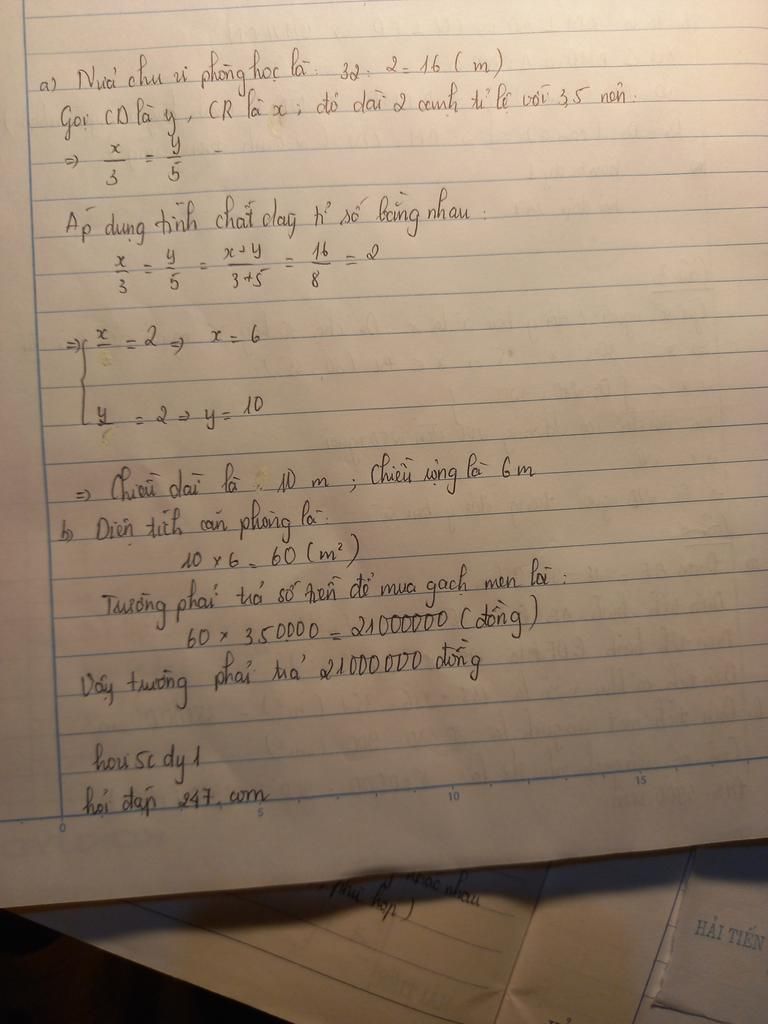 a) Nửa chu vi phòng học là: 32 : 2 = 16 (m)
Gọi CD là y, CR là x ; độ dài 2 cạnh tỉ lệ với 3,5 nên:
=> x/3 = y/5
Áp dụng tính chất dãy tỉ số bằng nhau:
x/3 = y/5 = x+y/3+5 = 16/8 = 2
=> { x/3 = 2 => x = 6
y/5 = 2 => y = 10
=> Chiều dài là : 10 m ; chiều rộng là 6 m
b) Diện tích căn phòng là:
10 x 6 = 60 (m²)
Trường phải trả số tiền để mua gạch men là :
60 x 350000 = 21000000 (đồng)
Vậy trường phải trả 21000000 đồng
hỏi đáp 247.com
0 5 10 15
nhau
phù hợp)
HẢI TIẾN